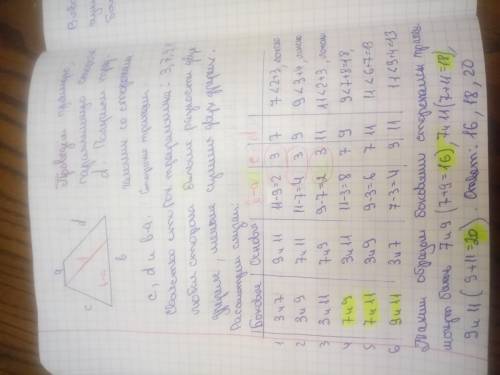 Проведем прямую
параллельную стороне
d. Получим треу.
гольник со сторонами
c, d и b-a.
Стороны трапеции: 3, 7, 9, 11
любая сторона больше разности двух
других, меньше суммы двух других.
Рассмотрим случаи:
Боковые Основа b-a c d
1 3 и 7 9 и 11 11-9=2 3 7 7<2+3, ложь
2 3 и 9 7 и 11 11-7=4 3 9 9<3+4, ложь
3 3 и 11 7 и 9 9-7=2 3 11 11<2+3, ложь
4 7 и 9 3 и 11 11-3=8 7 9 9<7+8=18,
5 7 и 11 3 и 9 9-3=6 7 11 11<6+7=13
6 9 и 11 3 и 7 7-3=4 9 11 11<9+4=13
Таким образом боковыми сторонами трапец.
могут быть 7 и 9 (7+9=16), 7 и 11 (7+11=18),
9 и 11 (9+11=20) Ответ: 16, 18, 20
a
c
d
b
b-a
d